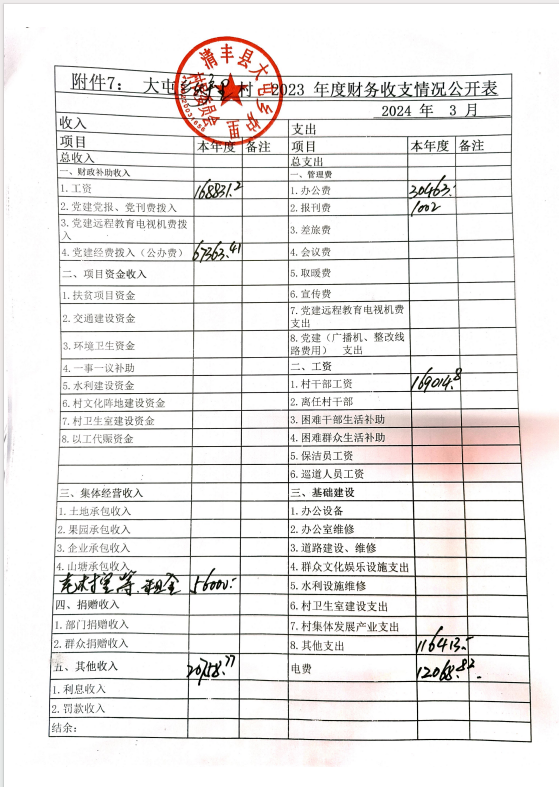 附件7： 大屯乡 村 2023 年度财务收支情况公开表
2024 年 3 月
收入 支出
项目 本年度 备注 项目 本年度 备注
总收入 总支出
一、财政补助收入 一、管理费
1.工资 168831.2 1.办公费 30463.-
2.党建党报、党刊费拨入 2.报刊费 1002
3.党建远程教育电视机费拨入 3.差旅费
4.党建经费拨入（公办费） 67363.41 4.会议费
二、项目资金收入 5.取暖费
1.扶贫项目资金 6.宣传费
2.交通建设资金 7.党建远程教育电视机费支出
3.环境卫生资金 8.党建（广播机、整改线路费用） 支出
4.一事一议补助 二、工资
5.水利建设资金 1.村干部工资 169014.8
6.村文化阵地建设资金 2.离任村干部
7.村卫生室建设资金 3.困难干部生活补助
8.以工代赈资金 4.困难群众生活补助
5.保洁员工资
6.巡道人员工资
三、集体经营收入 三、基础建设
1.土地承包收入 1.办公设备
2.果园承包收入 2.办公室维修
3.企业承包收入 3.道路建设、维修
4.山塘承包收入 4.群众文化娱乐设施支出
等 租金 56000.- 5.水利设施维修
四、捐赠收入 6.村卫生室建设支出
1.部门捐赠收入 7.村集体发展产业支出
2.群众捐赠收入 8.其他支出 116413.-
五、其他收入 20758.77 电费 12068.82
1.利息收入
2.罚款收入
结余:
清丰县大屯乡 里
村民委员会